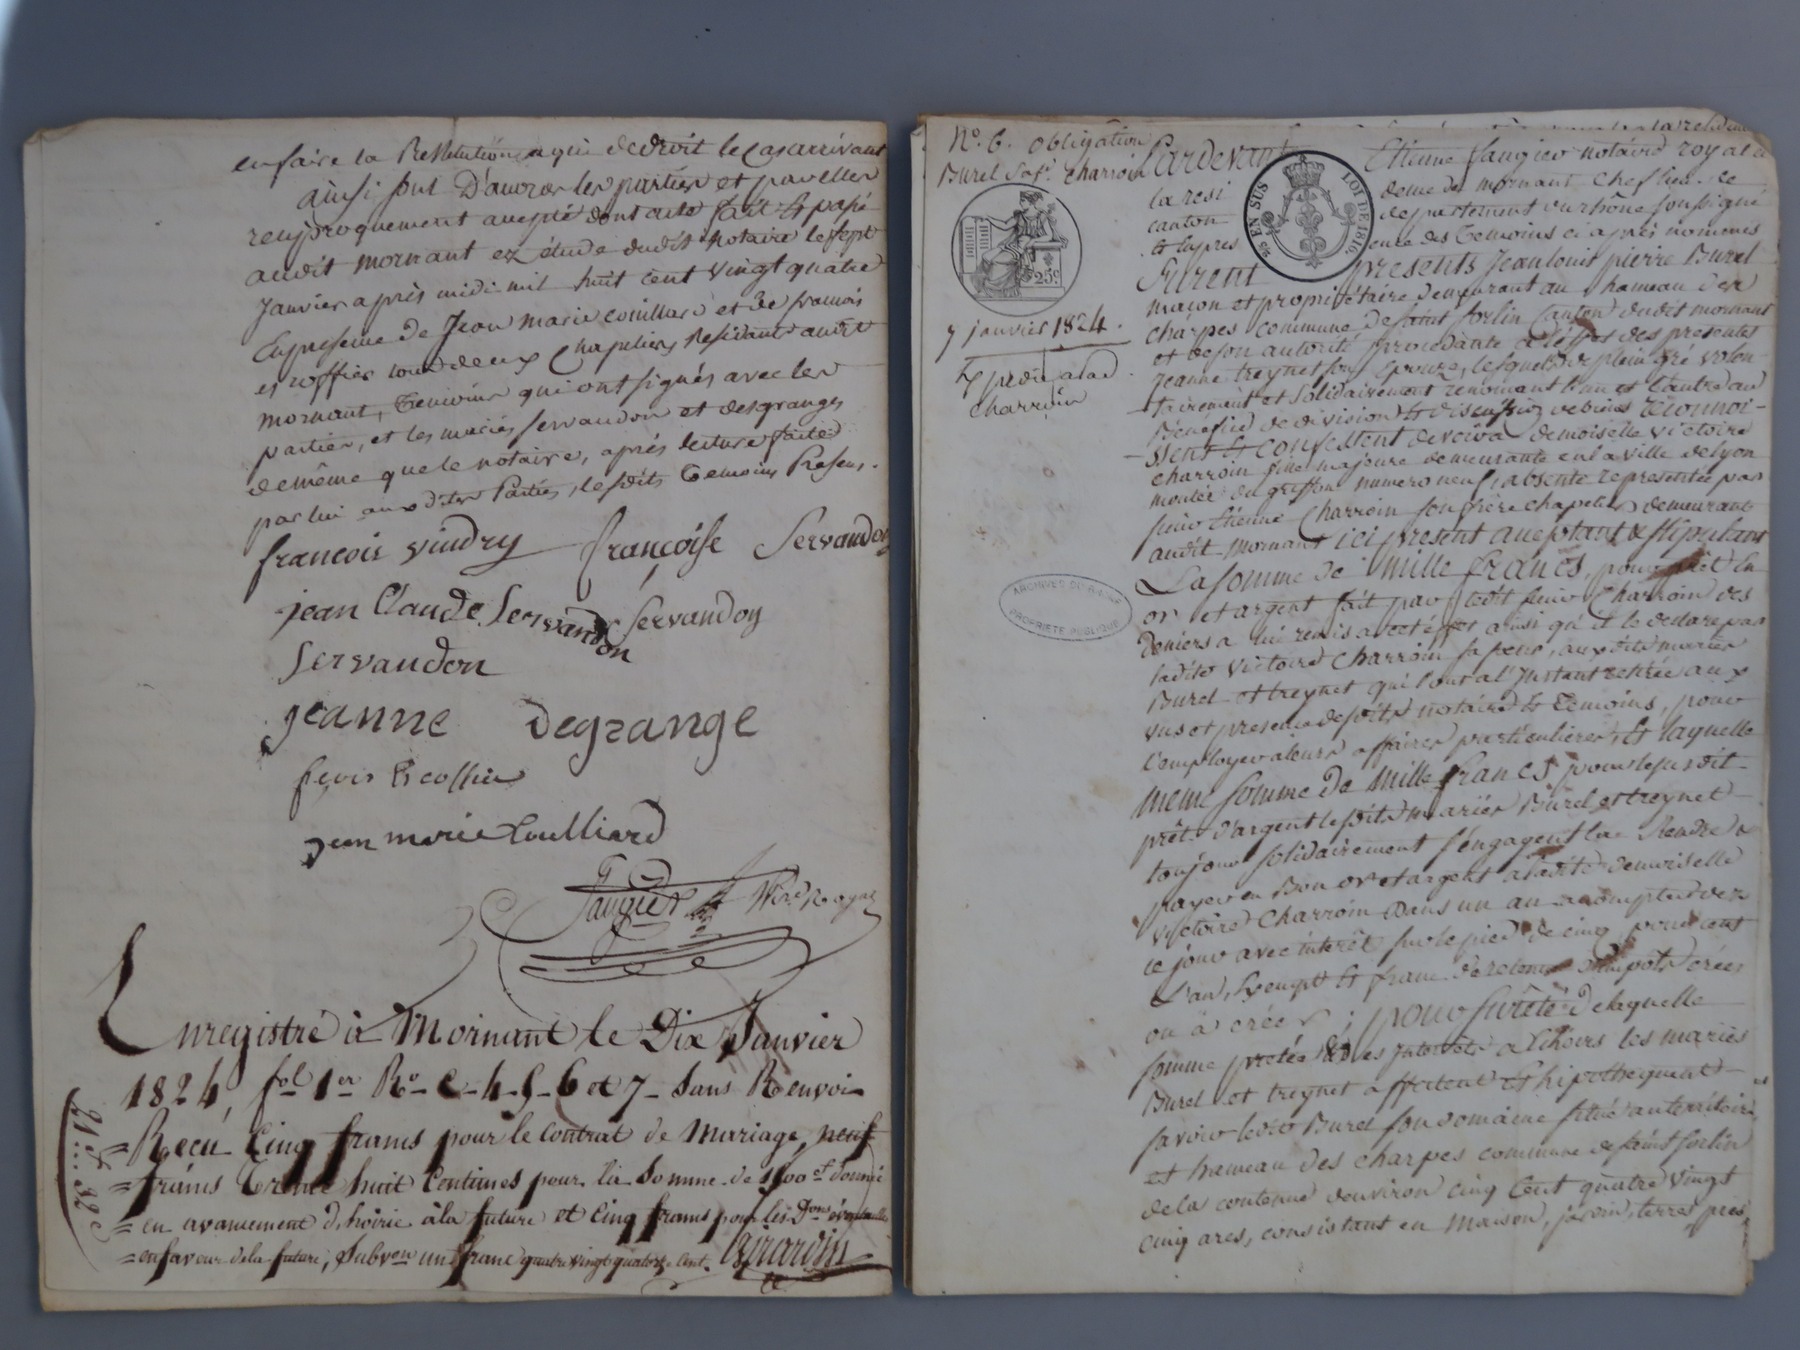 en faire la Restitution a qui de droit le cas arrivant
ainsi sont D'accord les parties et par elles
reciproquement accepté dont acte fait & passé
audit mornant ez étude dudit notaire le sept
janvier après midi mil huit cent vingt quatre
En presence de Jean marie couillard et de francois
escoffier tous deux Chapeliers Residants audit
mornant, Temoins qui ont signés avec les
parties, et les mariés servandon et desgranges
de même que le notaire, après lecture faite
par lui aux dites Parties, lesdits Temoins Presens.
francois vindry françoise Servandon
jean Claude Servandon Servandon
Servandon
jeanne Degrange
fçois Escoffier
jean marie Coulliard
Saugier Nre. Royal
Enregistré à Mornant le Dix Janvier
1824, fol 1er Ro C 4-5-6 et 7 Sans Renvoi
Reçu Cinq francs pour le Contrat de Mariage, neuf
francs Trente huit Centimes pour la Somme de 1500 f donné
en avancement d'hoirie à la future et Cinq francs pour les Dons éventuels
en faveur de la future, Subvon un franc quatre vingt quatorze Cent. Girardin
21 f 32 c
No. 6. obligation
Burel Sol. charroin
25c.
7 janvier 1824.
Expedié a lad.
charroin
ARCHIVES DU RHÔNE
PROPRIETE PUBLIQUE
25 EN SUS LOI DE 1816.
Pardevant Etienne Saugier notaire royal a
la resi dence de mornant chef lieu de
canton departement du rhône soussigné
& en pres ence des Temoins ci après nommés
Furent presents Jean louis pierre Burel
maçon et proprietaire demeurant au hameau des
charpes commune de saint sorlin Canton dudit mornant
et de son autorité procedante à l'effet des presentes
jeanne treynet son Epouze, lesquels de plein gré volon-
tairement et Solidairement renoncant l'un et l'autre au
Bénefice de division & discussion de biens reconnoi-
ssent & confessent devoir a demoiselle victoire
charroin fille majeure demeurante en la ville de lyon
montée du griffon numero neuf, absente representée par
sieur Etienne Charroin son frère chapelier demeurant
audit mornant ici present acceptant & stipulant
La somme de mille francs, pour prêt en
or et argent fait par ledit sieur Charroin des
deniers a lui remis a cet effet ainsi qu'il le declare par
ladite victoire Charroin sa soeur, aux dits mariés
Burel et treynet qui l'ont a l'Instant retirée aux
vus et presence desdits notaire & Temoins, pour
l'employer a leurs affaires particulieres, & laquelle
meme somme de mille francs pour le susdit
prêt d'argent lesdits mariés Burel et treynet
toujours solidairement s'engagent la Rendre &
payer en Bon or et argent a ladite demoiselle
victoire Charroin Dans un an a compter de
ce jour avec interêt sur le pied de cinq pour cent
L'an, Exempt & franc de retenue d'impots crées
ou a créer; pour Sureté de laquelle
somme pretée & des Interêts a Echoirs les mariés
Burel et treynet affectent & hipothequent
savoir ledit Burel son domaine situé au territoire
et hameau des charpes commune de saint sorlin
de la contenue d'environ cinq Cent quatre vingt
cinq ares, consistant en Maison, jardin, terres, près